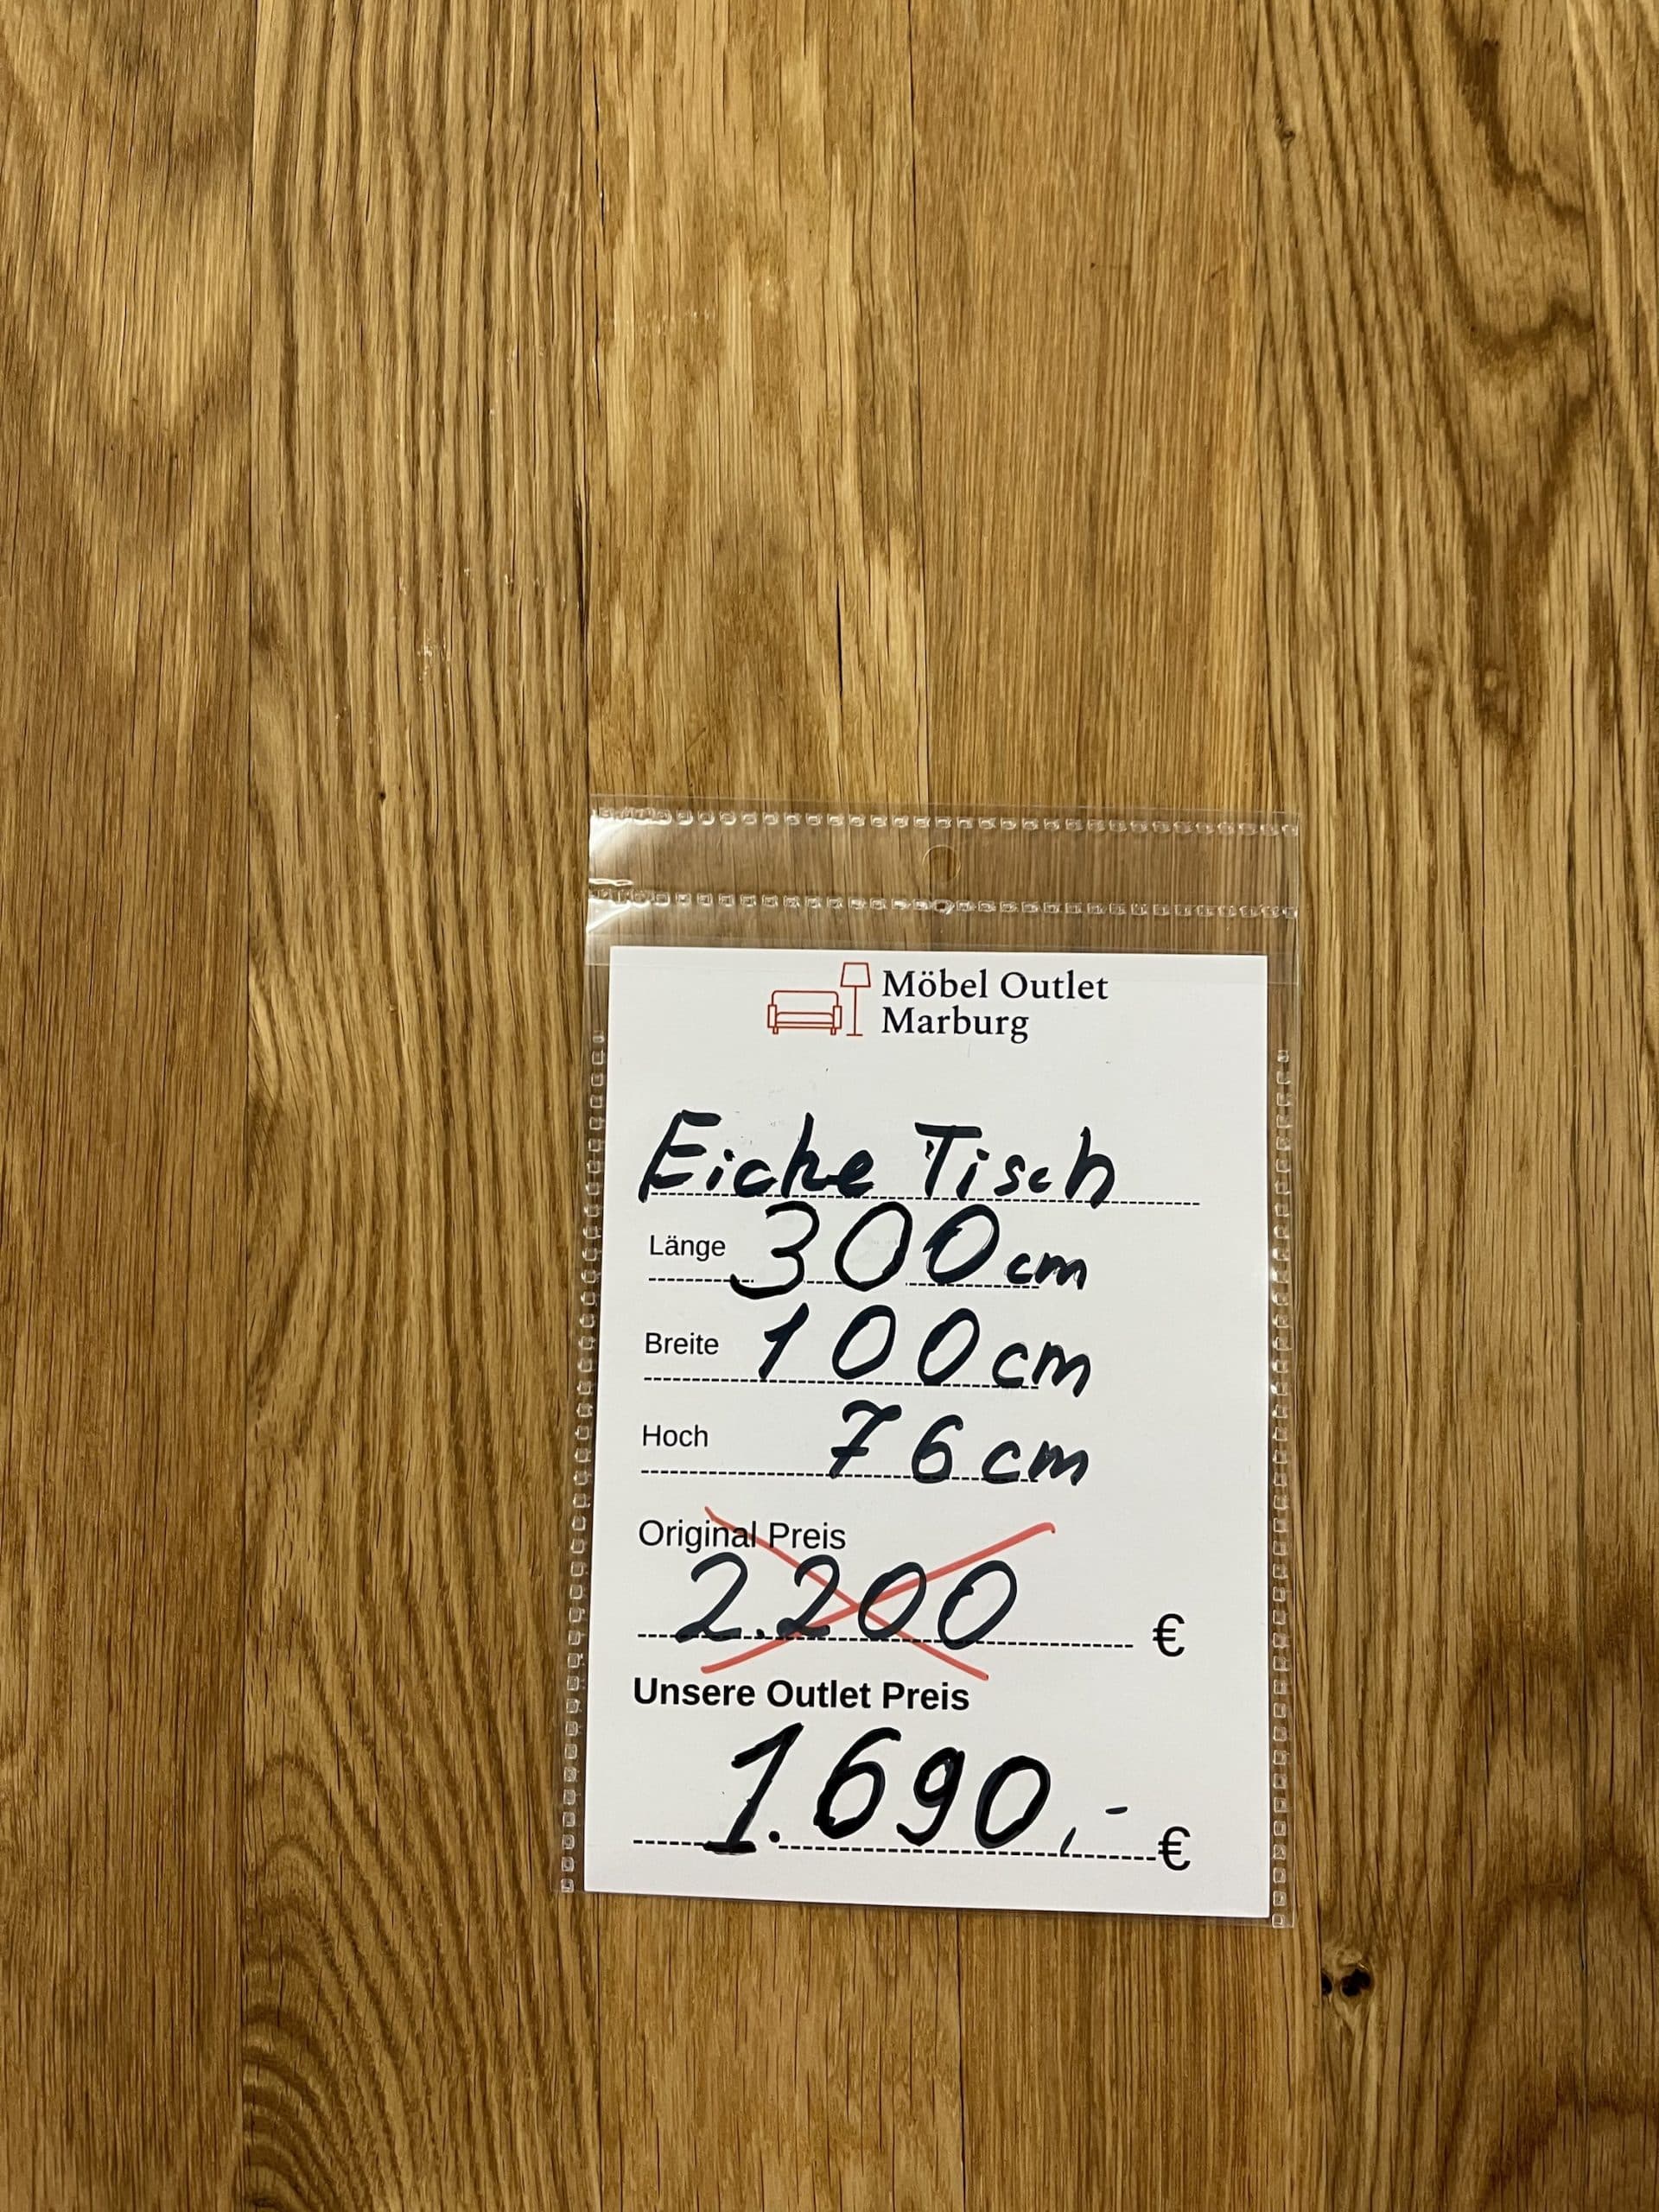 Möbel Outlet
Marburg
Eiche Tisch
Länge 300 cm
Breite 100 cm
Hoch 76 cm
Original Preis
2.200 €
Unsere Outlet Preis
1.690,- €